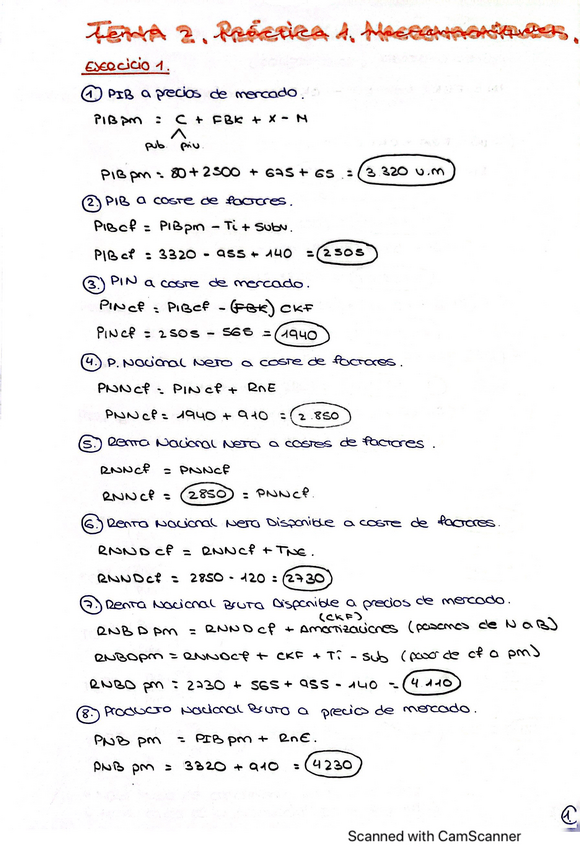 TEMA 2. Práctica 1. Macromagnitudes.
Exercicio 1.
① PIB a precios de mercado.
PIBpm = C + FBK + X - M
pub priv.
PIBpm = 80 + 2500 + 675 + 65 = 3320 u.m
② PIB a coste de factores.
PIBcf = PIBpm - Ti + Subv.
PIBcf = 3320 - 955 + 140 = 2505
③ PIN a coste de mercado.
PINcf = PIBcf - (FBK) CKF
PINcf = 2505 - 565 = 1940
④ P. Nacional Neto a coste de factores.
PNNcf = PINcf + RnE
PNNcf = 1940 + 910 = 2.850
⑤ Renta Nacional Neta a costes de factores.
RNNcf = PNNcf
RNNcf = 2850 = PNNcf.
⑥ Renta Nacional Neta Disponible a coste de factores.
RNNDcf = RNNcf + TnE.
RNNDcf = 2850 - 120 = 2730
⑦ Renta Nacional Bruta Disponible a precios de mercado.
(CKF)
RNBDpm = RNNDcf + Amortizaciones (pasamos de N a B)
RNBDpm = RNNDcf + CKF + Ti - Sub (paso de cf a pm)
RNBD pm = 2730 + 565 + 955 - 140 = 4110
⑧ Producto Nacional Bruto a precios de mercado.
PNB pm = PIBpm + RnE.
PNB pm = 3320 + 910 = 4230
1.
Scanned with CamScanner